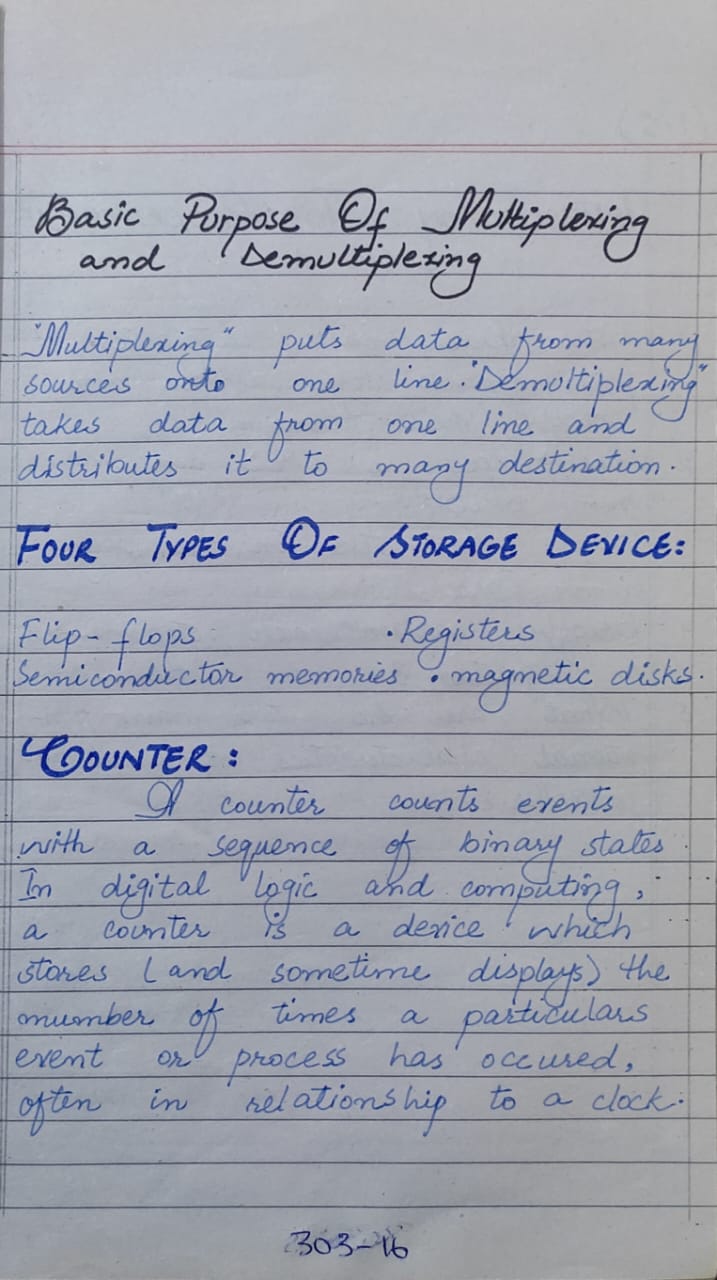 Basic Purpose Of Multiplexing
and Demultiplexing
"Multiplexing" puts data from many
sources onto one line. "Demultiplexing"
takes data from one line and
distributes it to many destination.
FOUR TYPES OF STORAGE DEVICE:
Flip-flops • Registers
Semiconductor memories • magnetic disks.
COUNTER:
A counter counts events
with a sequence of binary states.
In digital logic and computing,
a counter is a device which
stores (and sometime displays) the
number of times a particulars
event or process has occured,
often in relationship to a clock.
303-16